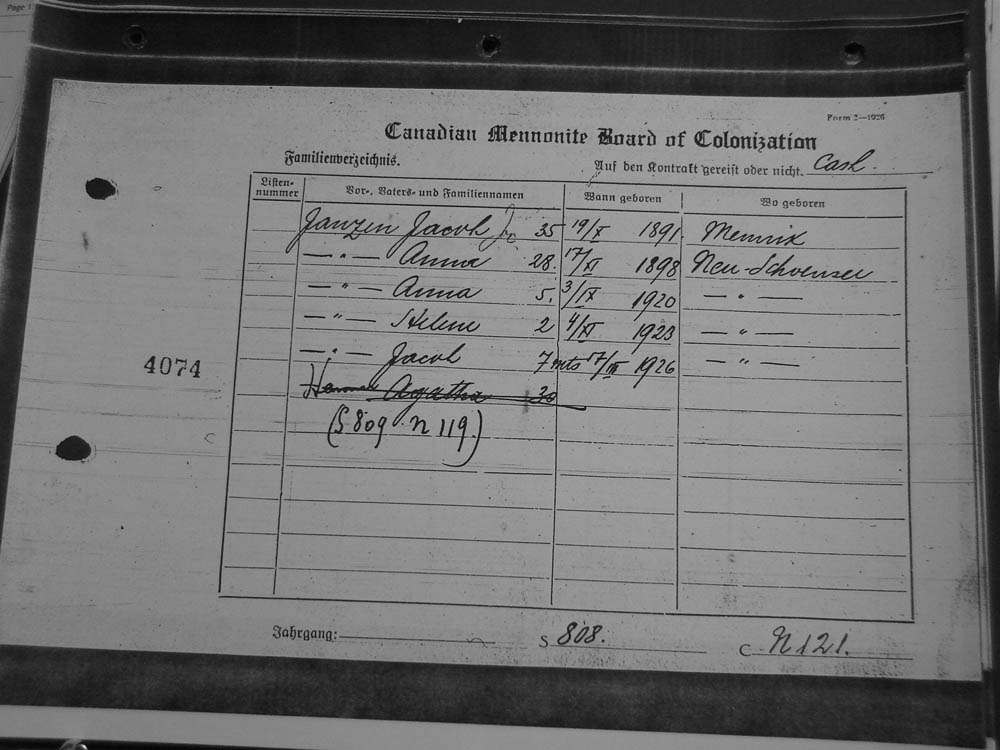 Page 1
Form 2—1926
Canadian Mennonite Board of Colonization
Familienverzeichnis. Auf den Kontrakt gereist oder nicht. Cash.
Listen-nummer Vor-, Vaters- und Familiennamen Wann geboren Wo geboren
Janzen Jacob 35 19/X 1891.
—"— Anna 28. 17/XI 1898 Neu-Schoensee
—"— Anna 5. 3/IX 1920 —"—
—"— Helene 2 4/XI 1923 —"—
4074 —"— Jacob 7 mts 17/III 1926 —"—
Agatha 30
(S 809 N 119.)
Jahrgang: S 808. C N 121.